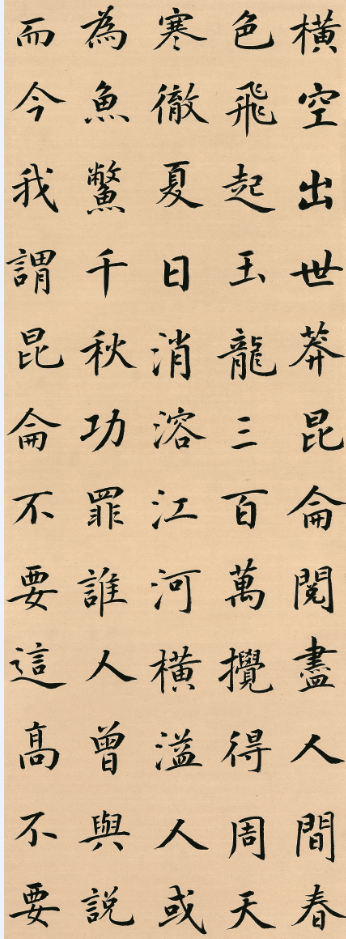 橫空出世莽昆侖閱盡人間春
色飛起玉龍三百萬攪得周天
寒徹夏日消溶江河橫溢人或
為魚鱉千秋功罪誰人曾與説
而今我謂昆侖不要這高不要